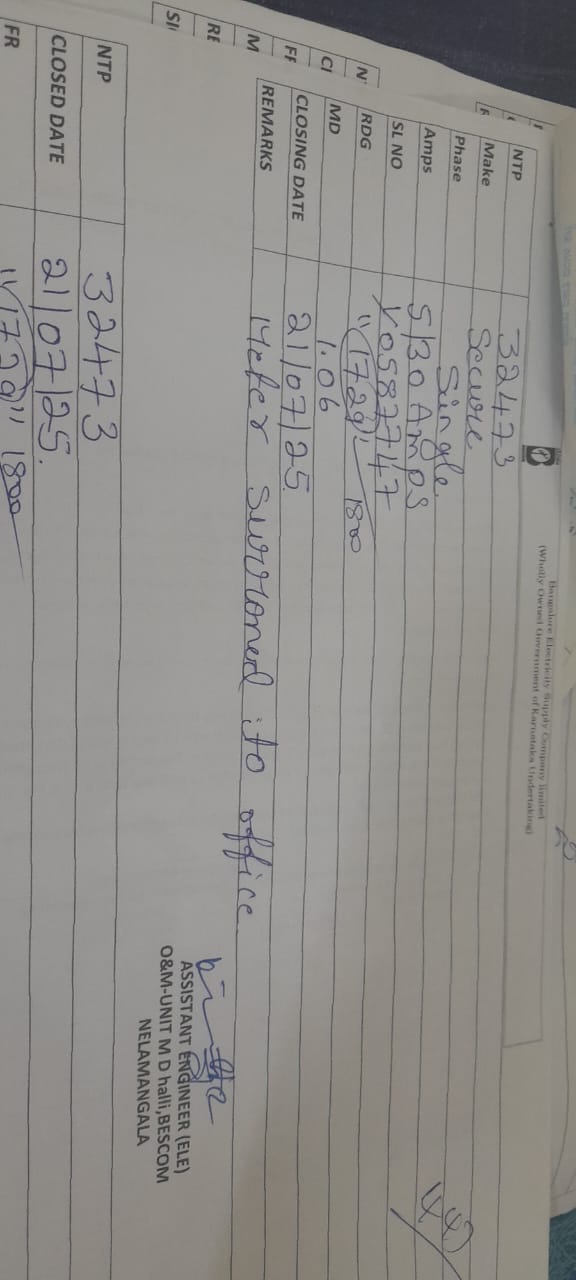 Bangalore Electricity Supply Company limited
(Wholly Owned Government of Karnataka Undertaking)
NTP 32473
Make Secure
Phase Single
Amps 5/30 Amps
SL NO Y0587747
RDG "1729" 1800
MD 1.06
CLOSING DATE 21/07/25
REMARKS Meter surrloned to office
ASSISTANT ENGINEER (ELE)
O&M-UNIT M D halli,BESCOM
NELAMANGALA
44
NTP 32473
CLOSED DATE 21/07/25.
FR "1729" 1800